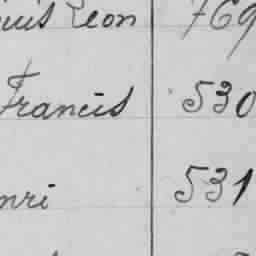 uis Leon 769
Francis 530
nri 531